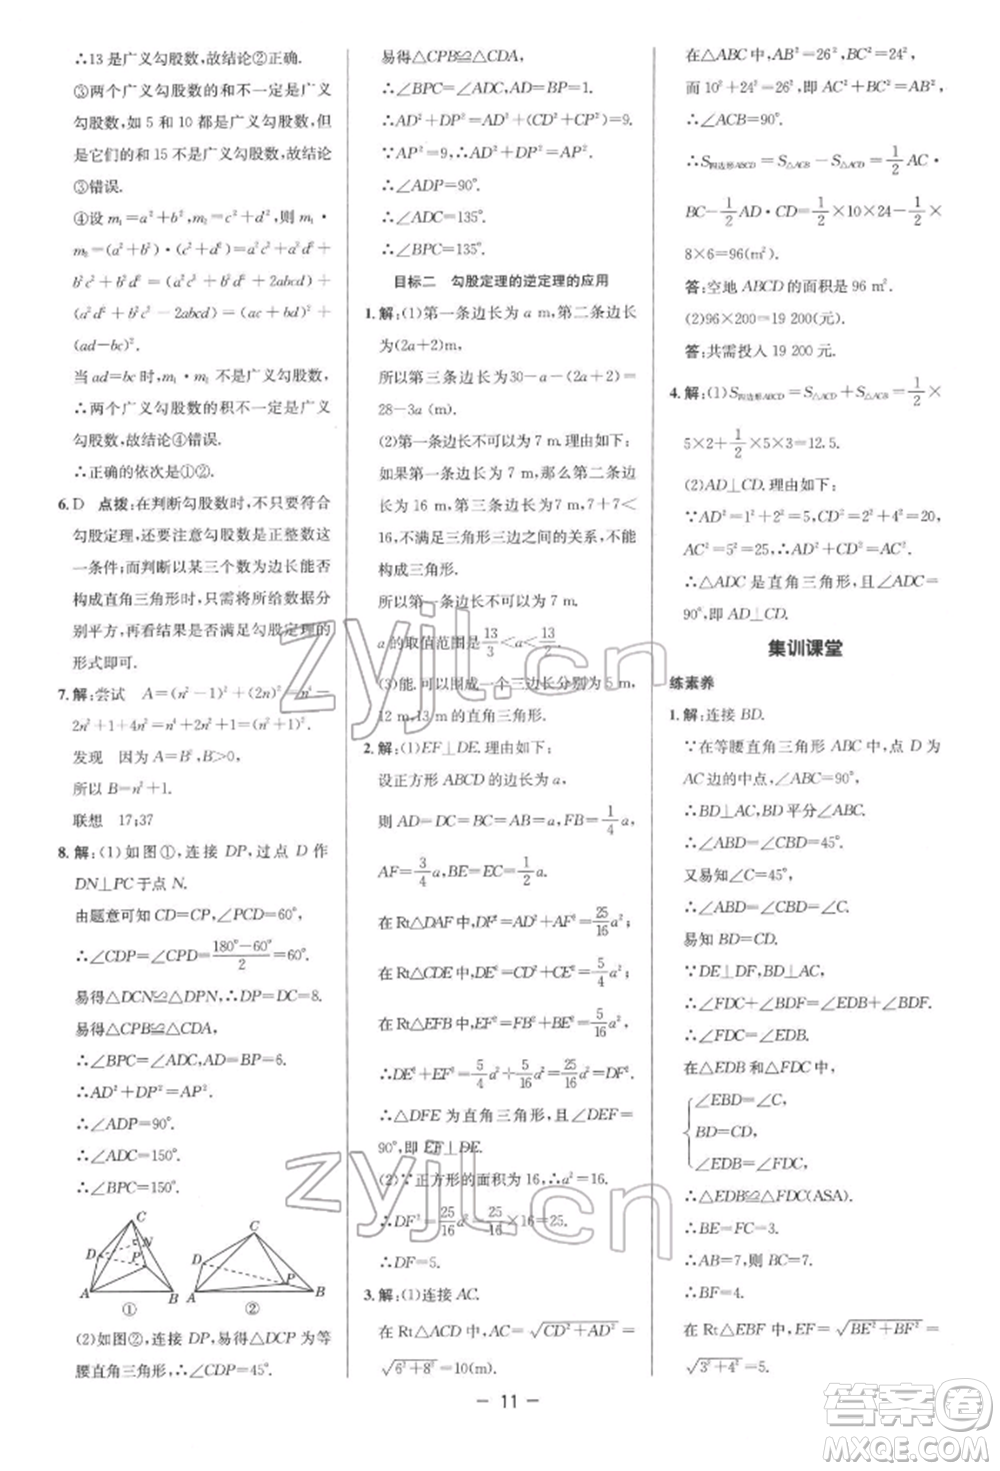 ∴13 是广义勾股数,故结论②正确.
③两个广义勾股数的和不一定是广义
勾股数,如 5 和 10 都是广义勾股数,但
是它们的和 15 不是广义勾股数,故结论
③错误.
④设 m₁=a²+b²,m₂=c²+d²,则 m₁·
m₂=(a²+b²)·(c²+d²)=a²c²+a²d²+
b²c²+b²d²=(a²c²+b²d²+2abcd)+
(a²d²+b²c²-2abcd)=(ac+bd)²+
(ad-bc)².
当 ad=bc 时,m₁·m₂ 不是广义勾股数,
∴两个广义勾股数的积不一定是广义
勾股数,故结论④错误.
∴正确的依次是①②.
6. D 点拨:在判断勾股数时,不只要符合
勾股定理,还要注意勾股数是正整数这
一条件;而判断以某三个数为边长能否
构成直角三角形时,只需将所给数据分
别平方,再看结果是否满足勾股定理的
形式即可.
7. 解:尝试 A=(n²-1)²+(2n)²=n⁴-
2n²+1+4n²=n⁴+2n²+1=(n²+1)².
发现 因为 A=B²,B>0,
所以 B=n²+1.
联想 17;37
8. 解:(1)如图①,连接 DP,过点 D 作
DN⊥PC 于点 N.
由题意可知 CD=CP,∠PCD=60°,
∴∠CDP=∠CPD=(180°-60°)/2=60°.
易得△DCN≌△DPN,∴DP=DC=8.
易得△CPB≌△CDA,
∴∠BPC=∠ADC,AD=BP=6.
∴AD²+DP²=AP².
∴∠ADP=90°.
∴∠ADC=150°.
∴∠BPC=150°.
C
D
N
P
A
B
①
C
D
P
A
B
②
(2)如图②,连接 DP,易得△DCP 为等
腰直角三角形,∴∠CDP=45°.
易得△CPB≌△CDA,
∴∠BPC=∠ADC,AD=BP=1.
∴AD²+DP²=1+(CD²+CP²)=9.
∵AP²=9,∴AP²=AD²+DP².
∴∠ADP=90°.
∴∠ADC=135°.
∴∠BPC=135°.
目标二 勾股定理的逆定理的应用
1. 解:(1)第一条边长为 a m,第二条边长
为(2a+2)m,
所以第三条边长为30-a-(2a+2)=
28-3a (m).
(2)第一条边长不可以为 7 m.理由如下:
如果第一条边长为 7 m,那么第二条边
长为 16 m,第三条边长为 7 m,7+7<
16,不满足三角形三边之间的关系,不能
构成三角形.
所以第一条边长不可以为 7 m.
a 的取值范围是13/3<a<13/2.
(3)能.可以围成一个三边长分别为 5 m,
12 m,13 m 的直角三角形.
2. 解:(1)EF⊥DE.理由如下:
设正方形 ABCD 的边长为 a,
则 AD=DC=BC=AB=a,FB=1/4 a,
AF=3/4 a,BE=EC=1/2 a.
在 Rt△DAF 中,DF²=AD²+AF²=25/16 a²;
在 Rt△CDE 中,DE²=CD²+CE²=5/4 a²;
在 Rt△EFB 中,EF²=FB²+BE²=5/16 a².
∴DE²+EF²=5/4 a²+5/16 a²=25/16 a²=DF².
∴△DFE 为直角三角形,且∠DEF=
90°,即 EF⊥DE.
(2)∵正方形的面积为 16,∴a²=16.
∴DF²=25/16 a²=25/16×16=25.
∴DF=5.
3. 解:(1)连接 AC.
在 Rt△ACD 中,AC=√(CD²+AD²)=
√(6²+8²)=10(m).
在△ABC 中,AB²=26²,BC²=24²,
而 10²+24²=26²,即 AC²+BC²=AB²,
∴∠ACB=90°.
∴S四边形ABCD=S△ABC-S△ACD=1/2 AC·
BC-1/2 AD·CD=1/2×10×24-1/2×
8×6=96(m²).
答:空地 ABCD 的面积为 96 m².
(2)96×200=19 200(元).
答:共需投入 19 200 元.
4. 解:(1)S四边形ABCD=S△ACD+S△ACB=1/2×
5×2+1/2×5×3=12.5.
(2)AD⊥CD.理由如下:
∵AD²=1²+2²=5,CD²=2²+4²=20,
AC²=5²=25,∴AD²+CD²=AC².
∴△ADC 是直角三角形,且∠ADC=
90°,即 AD⊥CD.
集训课堂
练素养
1. 解:连接 BD.
∵在等腰直角三角形 ABC 中,点 D 为
AC 边的中点,∠ABC=90°,
∴BD⊥AC,BD 平分∠ABC.
∴∠ABD=∠CBD=45°.
又易知∠C=45°,
∴∠ABD=∠CBD=∠C.
易知 BD=CD.
∵DE⊥DF,BD⊥AC,
∴∠FDC+∠BDF=∠EDB+∠BDF.
∴∠FDC=∠EDB.
在△EDB 和△FDC 中,
∠EBD=∠C,
BD=CD,
∠EDB=∠FDC,
∴△EDB≌△FDC(ASA).
∴BE=FC=3.
∴AB=7,则 BC=7.
∴BF=4.
在 Rt△EBF 中,EF=√(BE²+BF²)=
√(3²+4²)=5.
- 11 -
zyjl.cn
zyjl.cn
答案圈
MXQE.COM